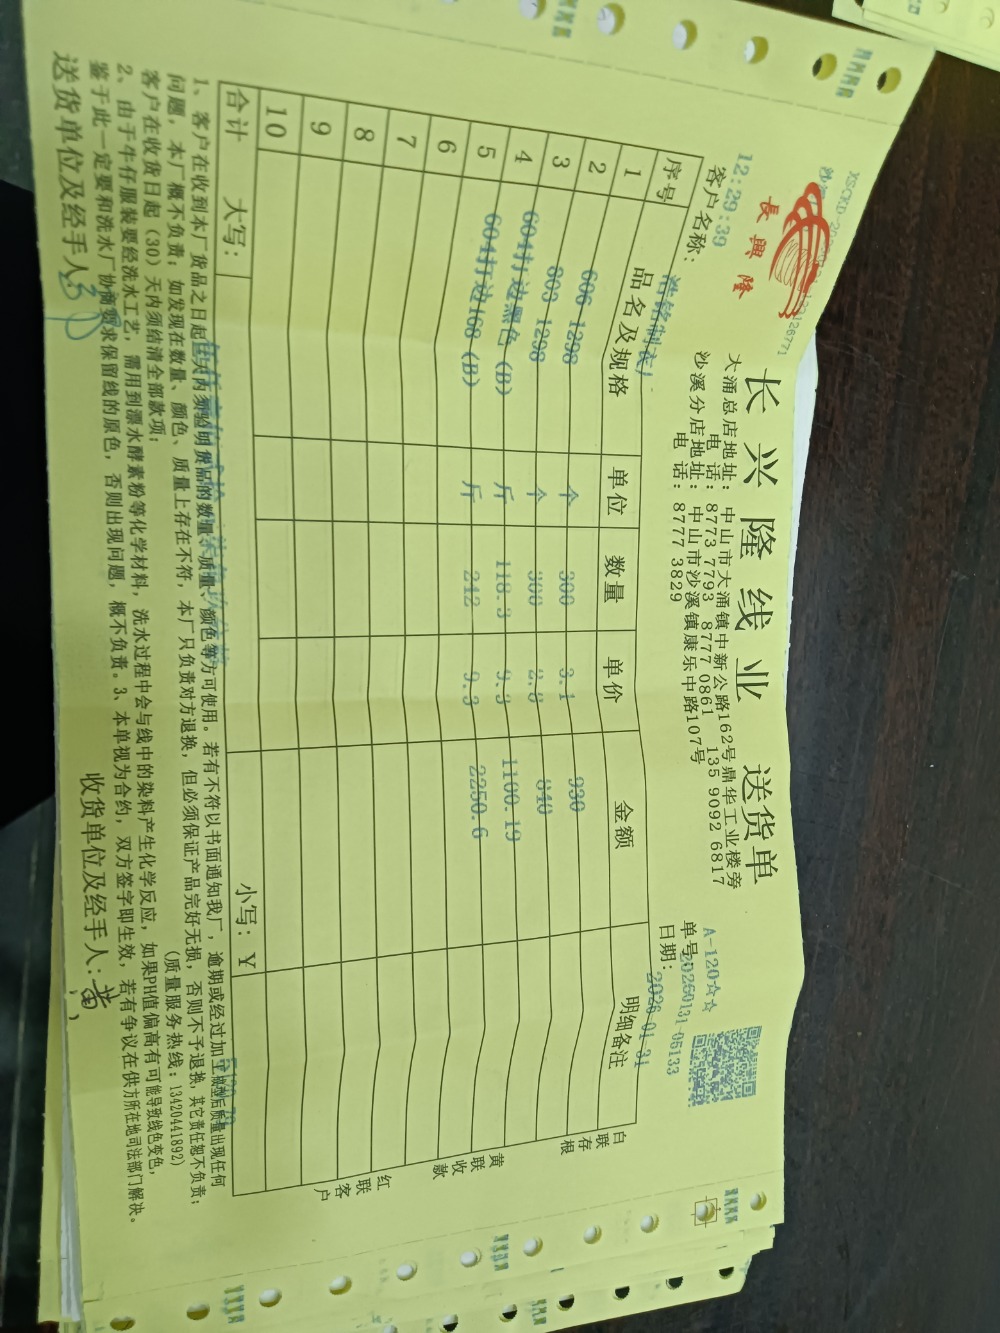 長興隆
长兴隆线业 送货单
A-120☆☆
大涌总店地址: 中山市大涌镇中新公路162号鼎华工业楼旁
电 话: 8773 7793 8777 0861 135 9092 6817
沙溪分店地址: 中山市沙溪镇康乐中路107号
电 话: 8777 3829
单号: 20260131-05133
12:29:39
客户名称:
日期: 2026-01-31
序号 品名及规格 单位 数量 单价 金额 明细备注
1
2 606-1298 个 300 3.1 930
3 803-1298 个 300 2.8 840
4 604打边黑色(B) 斤 118.3 9.3 1100.19
5 604打边168(B) 斤 242 9.3 2250.6
6
7
8
9
10
合计 大写: 小写: ¥
白联存根
黄联收款
红联客户
1、客户在收到本厂货品之日起 天内须验明货品的数量、质量、颜色等方可使用。若有不符以书面通知我厂,逾期或经过加工 后质量出现任何
问题,本厂概不负责;如发现在数量、颜色、质量上存在不符,本厂只负责对方退换,但必须保证产品完好无损,否则不予退换,其它责任恕不负责;
客户在收货日起(30)天内须结清全部款项; (质量服务热线: 13420441892)
2、由于牛仔服装要经洗水工艺,需用到漂水酵素粉等化学材料,洗水过程中会与线中的染料产生化学反应,如果PH值偏高有可能导致线色变色,
鉴于此一定要和洗水厂协商要求保留线的原色,否则出现问题,概不负责。3、本单视为合约,双方签字即生效,若有争议在供方所在地司法部门解决。
送货单位及经手人:
收货单位及经手人: